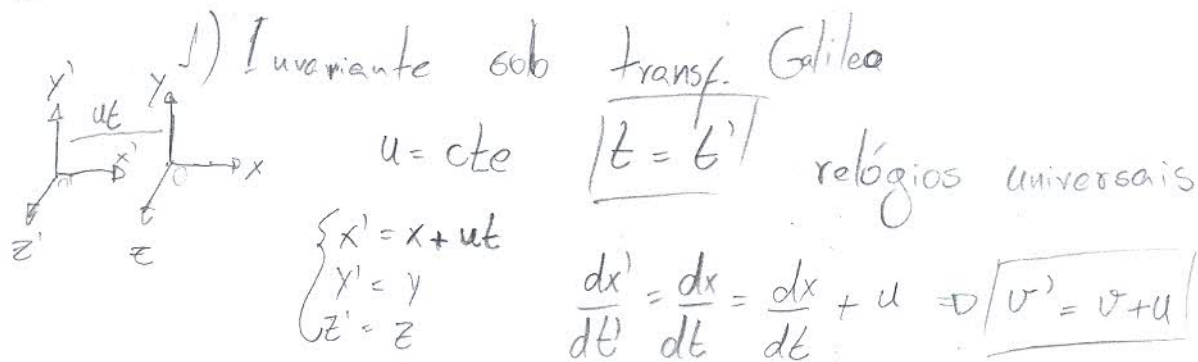 1) Invariante sob transf. Galileo
y' y
ut
x' x
O' O
z' z
u = cte t = t' relógios universais
x' = x + ut
y' = y
z' = z
dx'/dt' = dx/dt = dx/dt + u => v' = v + u